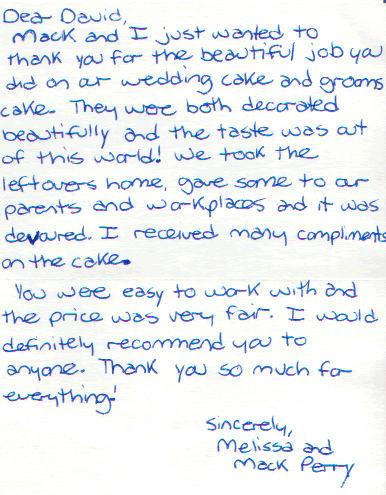 Dear David,
Mack and I just wanted to
thank you for the beautiful job you
did on our wedding cake and grooms
cake. They were both decorated
beautifully and the taste was out
of this world! We took the
leftovers home, gave some to our
parents and workplaces and it was
devoured. I received many compliments
on the cake.
You were easy to work with and
the price was very fair. I would
definitely recommend you to
anyone. Thank you so much for
everything!
Sincerely,
Melissa and
Mack Perry